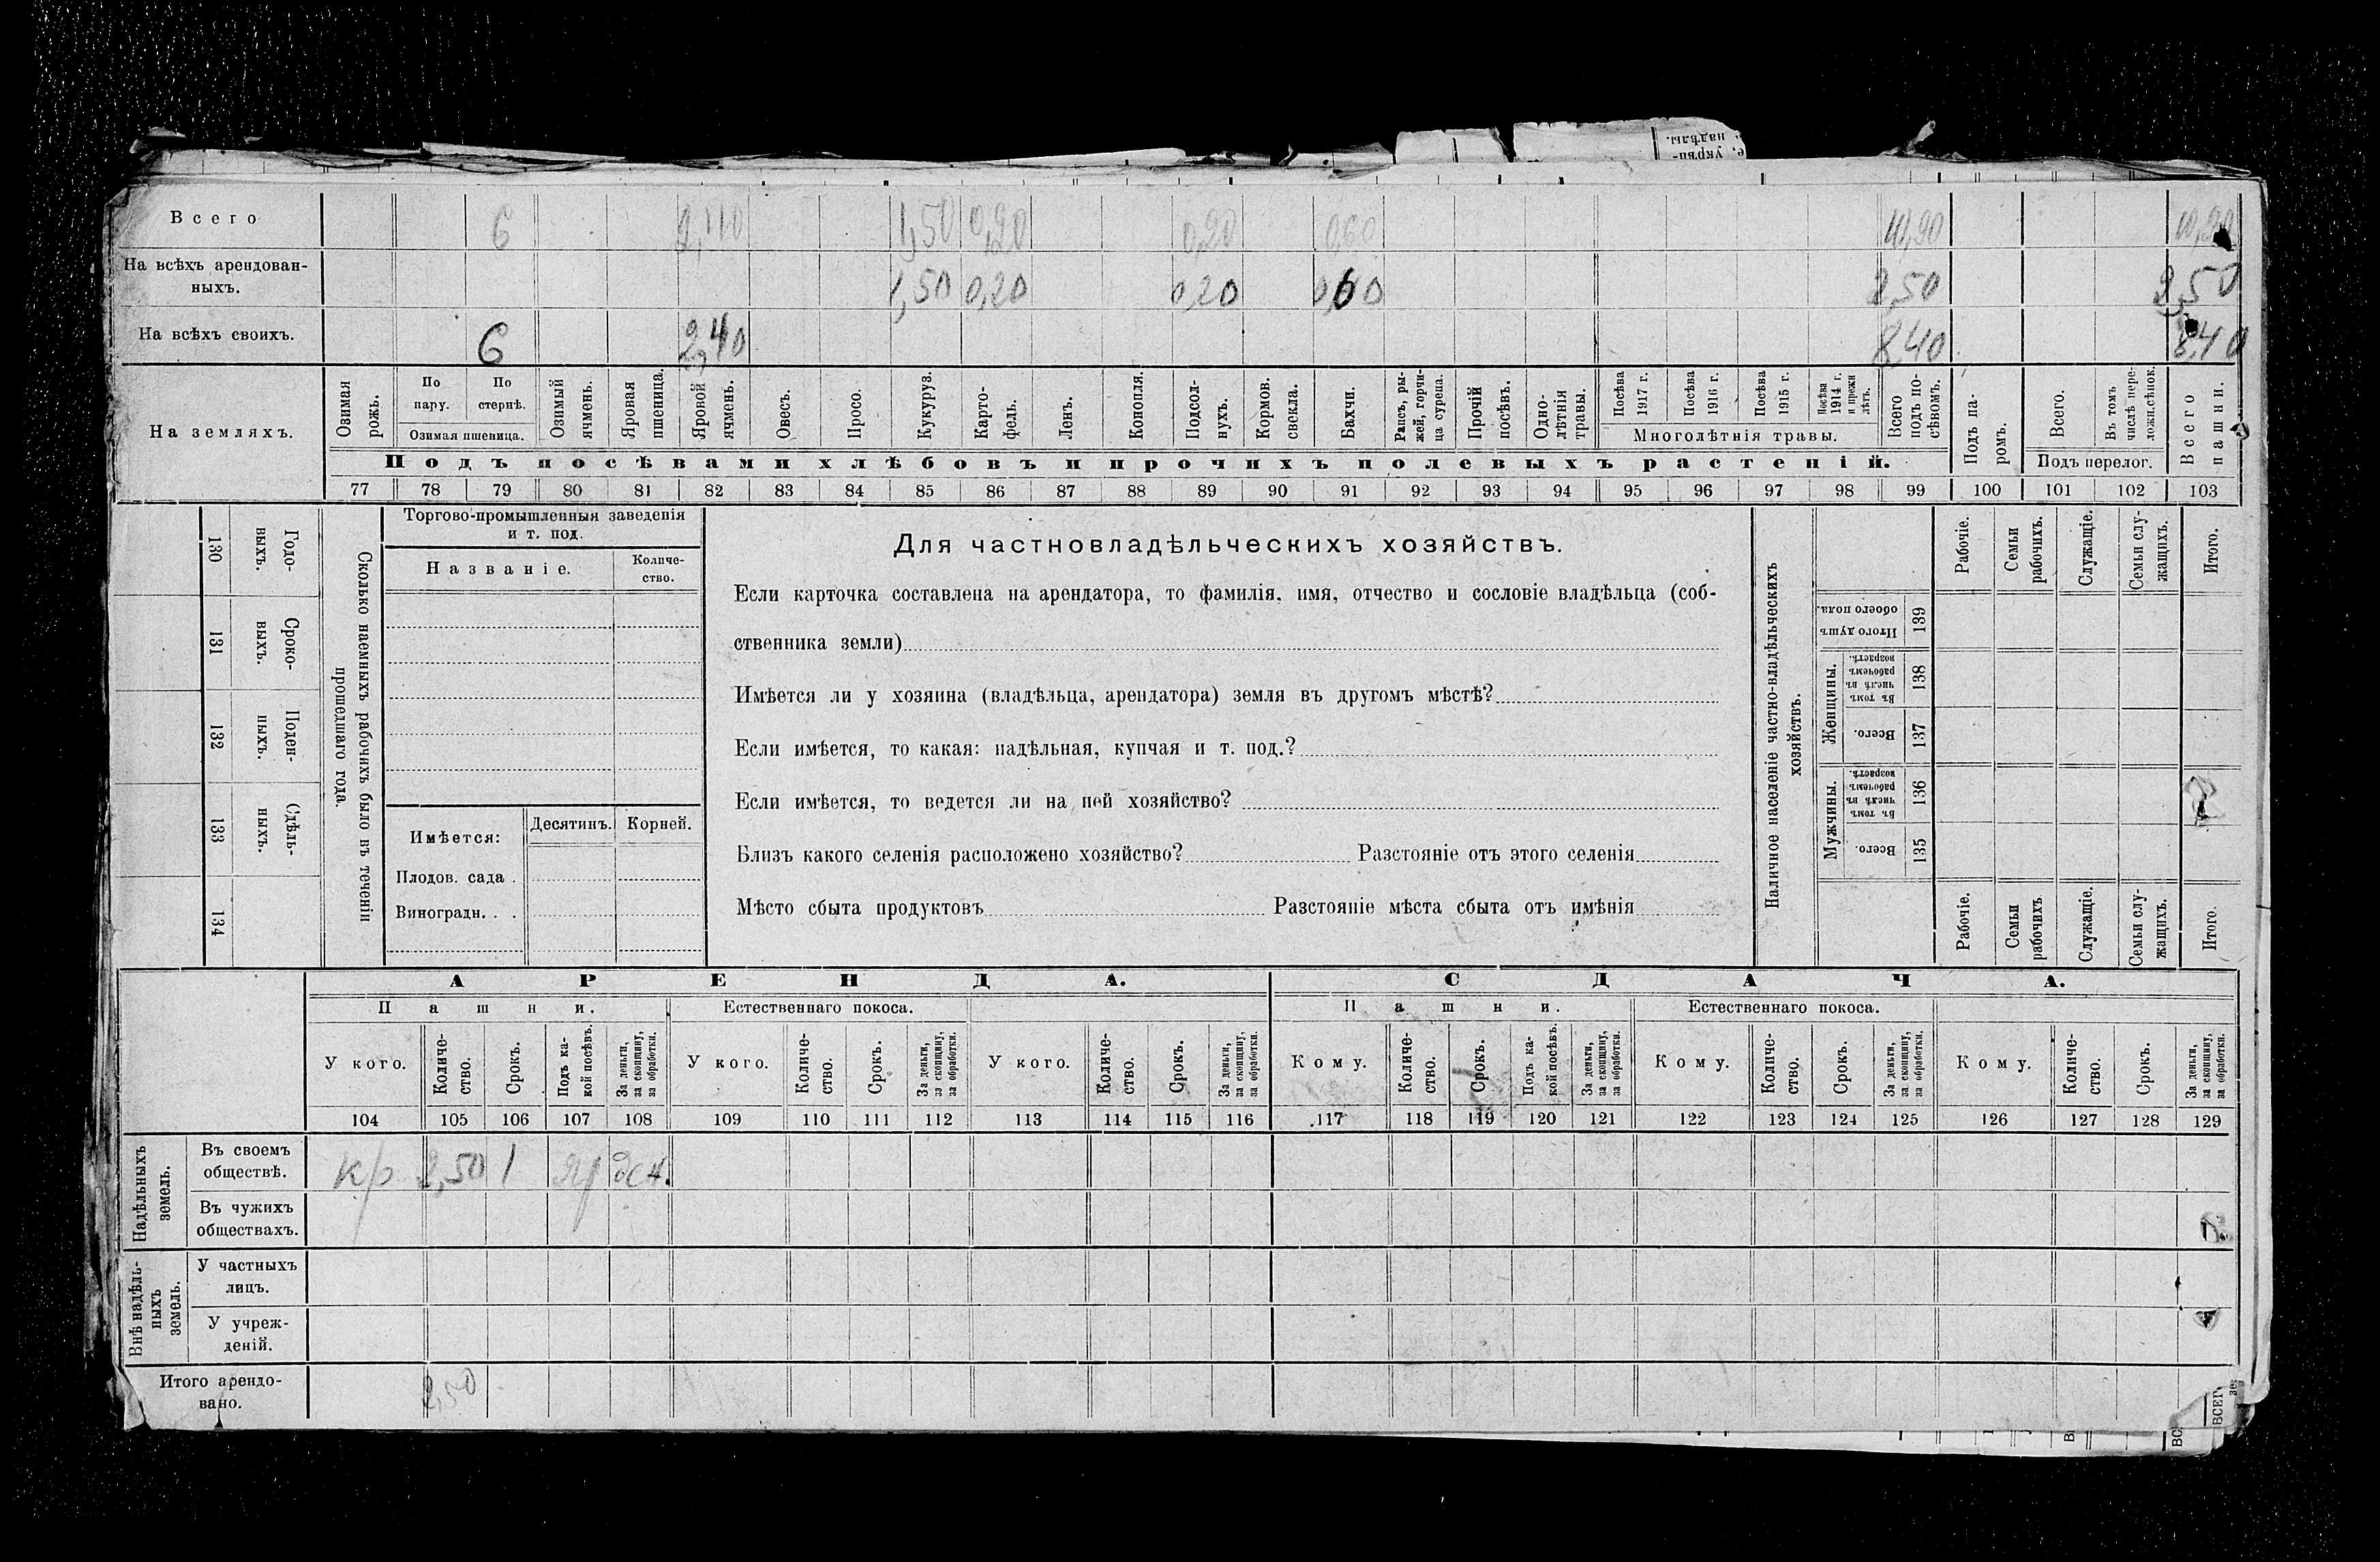 надѣлы.
е, укрѣп-
Всего 6 2,40 1,50 0,20 0,20 0,60 10,90 10,90
На всѣхъ арендован-
ныхъ. 1,50 0,20 0,20 0,60 2,50 2,50
На всѣхъ своихъ. 6 2,40 8,40 8,40
На земляхъ.
Озимая рожь.
По пару.
По стернѣ.
Озимая пшеница.
Озимый ячмень.
Яровая пшеница.
Яровой ячмень.
Овесъ.
Просо.
Кукуруз.
Карто-
фель.
Ленъ.
Конопля.
Подсол-
нухъ.
Кормов. свекла.
Бахчи.
Рапсъ, ры-
жей, горчи-
ца сурепа.
Прочій посѣвъ.
Одно-
лѣтнія травы.
Посѣва 1917 г.
Посѣва 1916 г.
Посѣва 1915 г.
Посѣва 1914 г. и прежн лѣтъ.
Многолѣтнія травы.
Всего подъ по-
сѣвомъ.
Подъ посѣвами хлѣбовъ и прочихъ полевыхъ растеній.
Подъ па-
ромъ.
Всего.
Въ томъ числѣ пере-
ложн.сѣнок.
Подъ перелог.
Всего пашни.
77 78 79 80 81 82 83 84 85 86 87 88 89 90 91 92 93 94 95 96 97 98 99 100 101 102 103
Годо-
ныхъ.
130
Сроко-
выхъ.
131
Поден-
ныхъ.
132
Сдѣль-
ныхъ.
133
134
Сколько наемныхъ рабочихъ было въ теченіи
прошедшаго года.
Торгово-промышленныя заведенія
и т. под.
Названіе.
Количе-
ство.
Имѣется:
Десятинъ. Корней.
Плодов. сада .
Виноградн. . .
Для частновладѣльческихъ хозяйствъ.
Если карточка составлена на арендатора, то фамилія, имя, отчество и сословіе владѣльца (соб-
ственника земли)
Имѣется ли у хозяина (владѣльца, арендатора) земля въ другомъ мѣстѣ?
Если имѣется, то какая: надѣльная, купчая и т. под.?
Если имѣется, то ведется ли на ней хозяйство?
Близъ какого селенія расположено хозяйство? Разстояніе отъ этого селенія
Мѣсто сбыта продуктовъ Разстояніе мѣста сбыта отъ имѣнія
Наличное населеніе частно-владѣльческихъ
хозяйствъ.
Рабочіе.
Семьи рабочихъ.
Служащіе.
Семьи слу-
жащихъ.
Итого.
Итого душъ
обоего пола.
139
Женщины.
Въ томъ числѣ въ рабочемъ возрастѣ.
138
Всего.
137
Мужчины.
Въ томъ числѣ въ рабочемъ возрастѣ.
136
Всего.
135
Рабочіе.
Семьи рабочихъ.
Служащіе.
Семьи слу-
жащихъ.
Итого.
АРЕНДА. СДАЧА.
Пашни. Естественнаго покоса. Пашни. Естественнаго покоса.
У кого.
Количе-
ство.
Срокъ.
Подъ ка-
кой посѣвъ.
За деньги,
за скопщину,
за обработки.
У кого.
Количе-
ство.
Срокъ.
За деньги,
за скопщину,
за обработки.
У кого.
Количе-
ство.
Срокъ.
За деньги,
за скопщину,
за обработки.
Кому.
Количе-
ство.
Срокъ.
Подъ ка-
кой посѣвъ.
За деньги,
за скопщину,
за обработки.
Кому.
Количе-
ство.
Срокъ.
За деньги,
за скопщину,
за обработки.
Кому.
Количе-
ство.
Срокъ.
За деньги,
за скопщину,
за обработки.
104 105 106 107 108 109 110 111 112 113 114 115 116 117 118 119 120 121 122 123 124 125 126 127 128 129
Надѣльныхъ
земель.
Въ своемъ
обществѣ.
кр 2,50 1 яр ден.
Въ чужихъ
обществахъ.
Внѣ надѣль-
ныхъ
земель.
У частныхъ
лицъ.
У учреж-
деній.
Итого арендо-
вано. 2,50
ВСЕГ